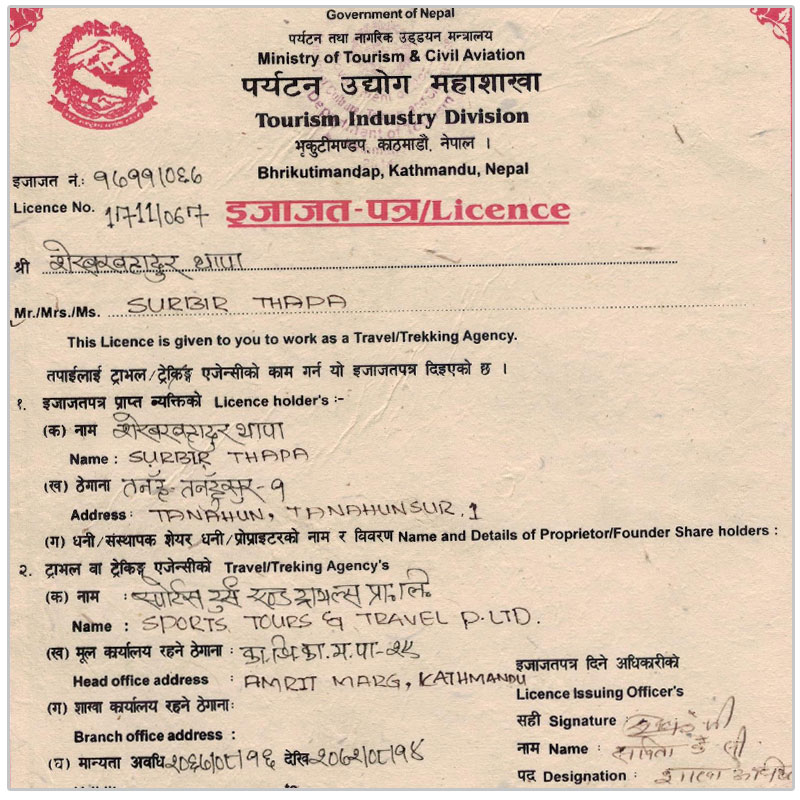 Government of Nepal
पर्यटन तथा नागरिक उड्डयन मन्त्रालय
Ministry of Tourism & Civil Aviation
पर्यटन उद्योग महाशाखा
Tourism Industry Division
भृकुटीमण्डप, काठमाडौं, नेपाल ।
Bhrikutimandap, Kathmandu, Nepal
इजाजत नं.: १७११/०६६
Licence No. 1711/067
इजाजत-पत्र/Licence
श्री शेरबहादुर थापा
Mr./Mrs./Ms. SURBIR THAPA
This Licence is given to you to work as a Travel/Trekking Agency.
तपाईलाई ट्राभल/ट्रेकिङ्ग एजेन्सीको काम गर्न यो इजाजतपत्र दिइएको छ ।
१. इजाजतपत्र प्राप्त ब्यक्तिको Licence holder's :-
(क) नाम थापा
Name : SURBIR THAPA
(ख) ठेगाना
Address : TANAHUN, TANAHUNSUR. 1
(ग) धनी/संस्थापक शेयर धनी/प्रोप्राइटरको नाम र विवरण Name and Details of Proprietor/Founder Share holders :
२. ट्राभल वा ट्रेकिङ्ग एजेन्सीको Travel/Treking Agency's
(क) नाम : स्पोर्टस टुर्स एण्ड ट्राभल्स प्रा. लि.
Name : SPORTS TOURS & TRAVEL P. LTD.
(ख) मूल कार्यालय रहने ठेगाना : का.जि.का.म.पा-२९
Head office address : AMRIT MARG, KATHMANDU
(ग) शाखा कार्यालय रहने ठेगानाः
Branch office address :
(घ) मान्यता अवधि २०६७/०८/१६ देखि २०७२/०८/१५
इजाजतपत्र दिने अधिकारीको
Licence Issuing Officer's
सही Signature :
नाम Name :
पद Designation :